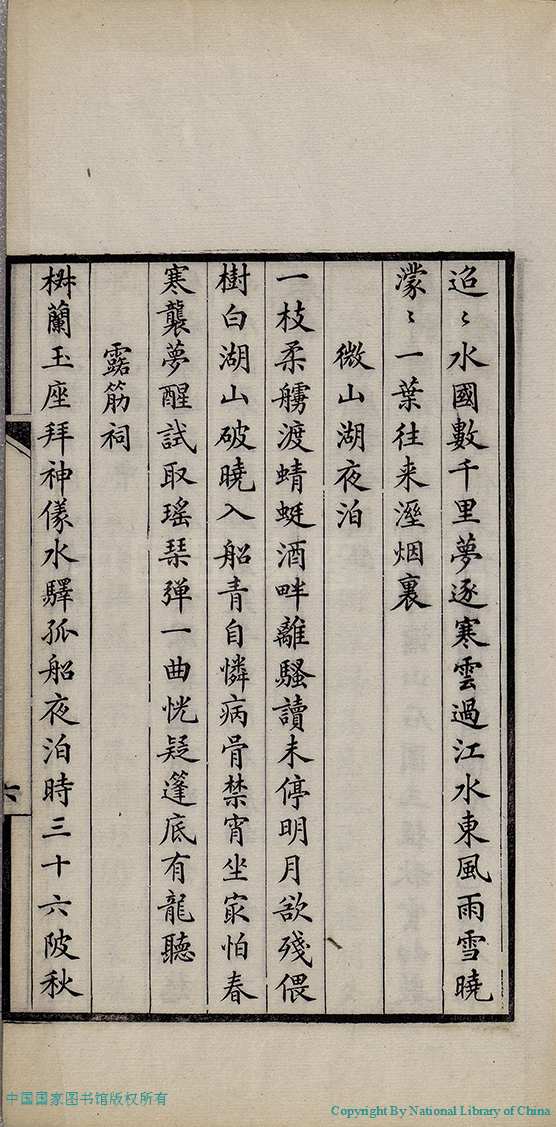 迢〻水國數千里夢逐寒雲過江水東風雨雪曉
濛〻一葉往来溼烟裏
微山湖夜泊
一枝柔艣渡蜻蜓酒畔離騷讀未停明月欲殘偎
樹白湖山破曉入船青自憐病骨禁宵坐㝡怕春
寒襲夢醒試取瑤琹弹一曲恍疑篷底有龍聽
露筋祠
椒蘭玉座拜神儀水驛孤船夜泊時三十六陂秋
六
中国国家图书馆版权所有
Copyright By National Library of China